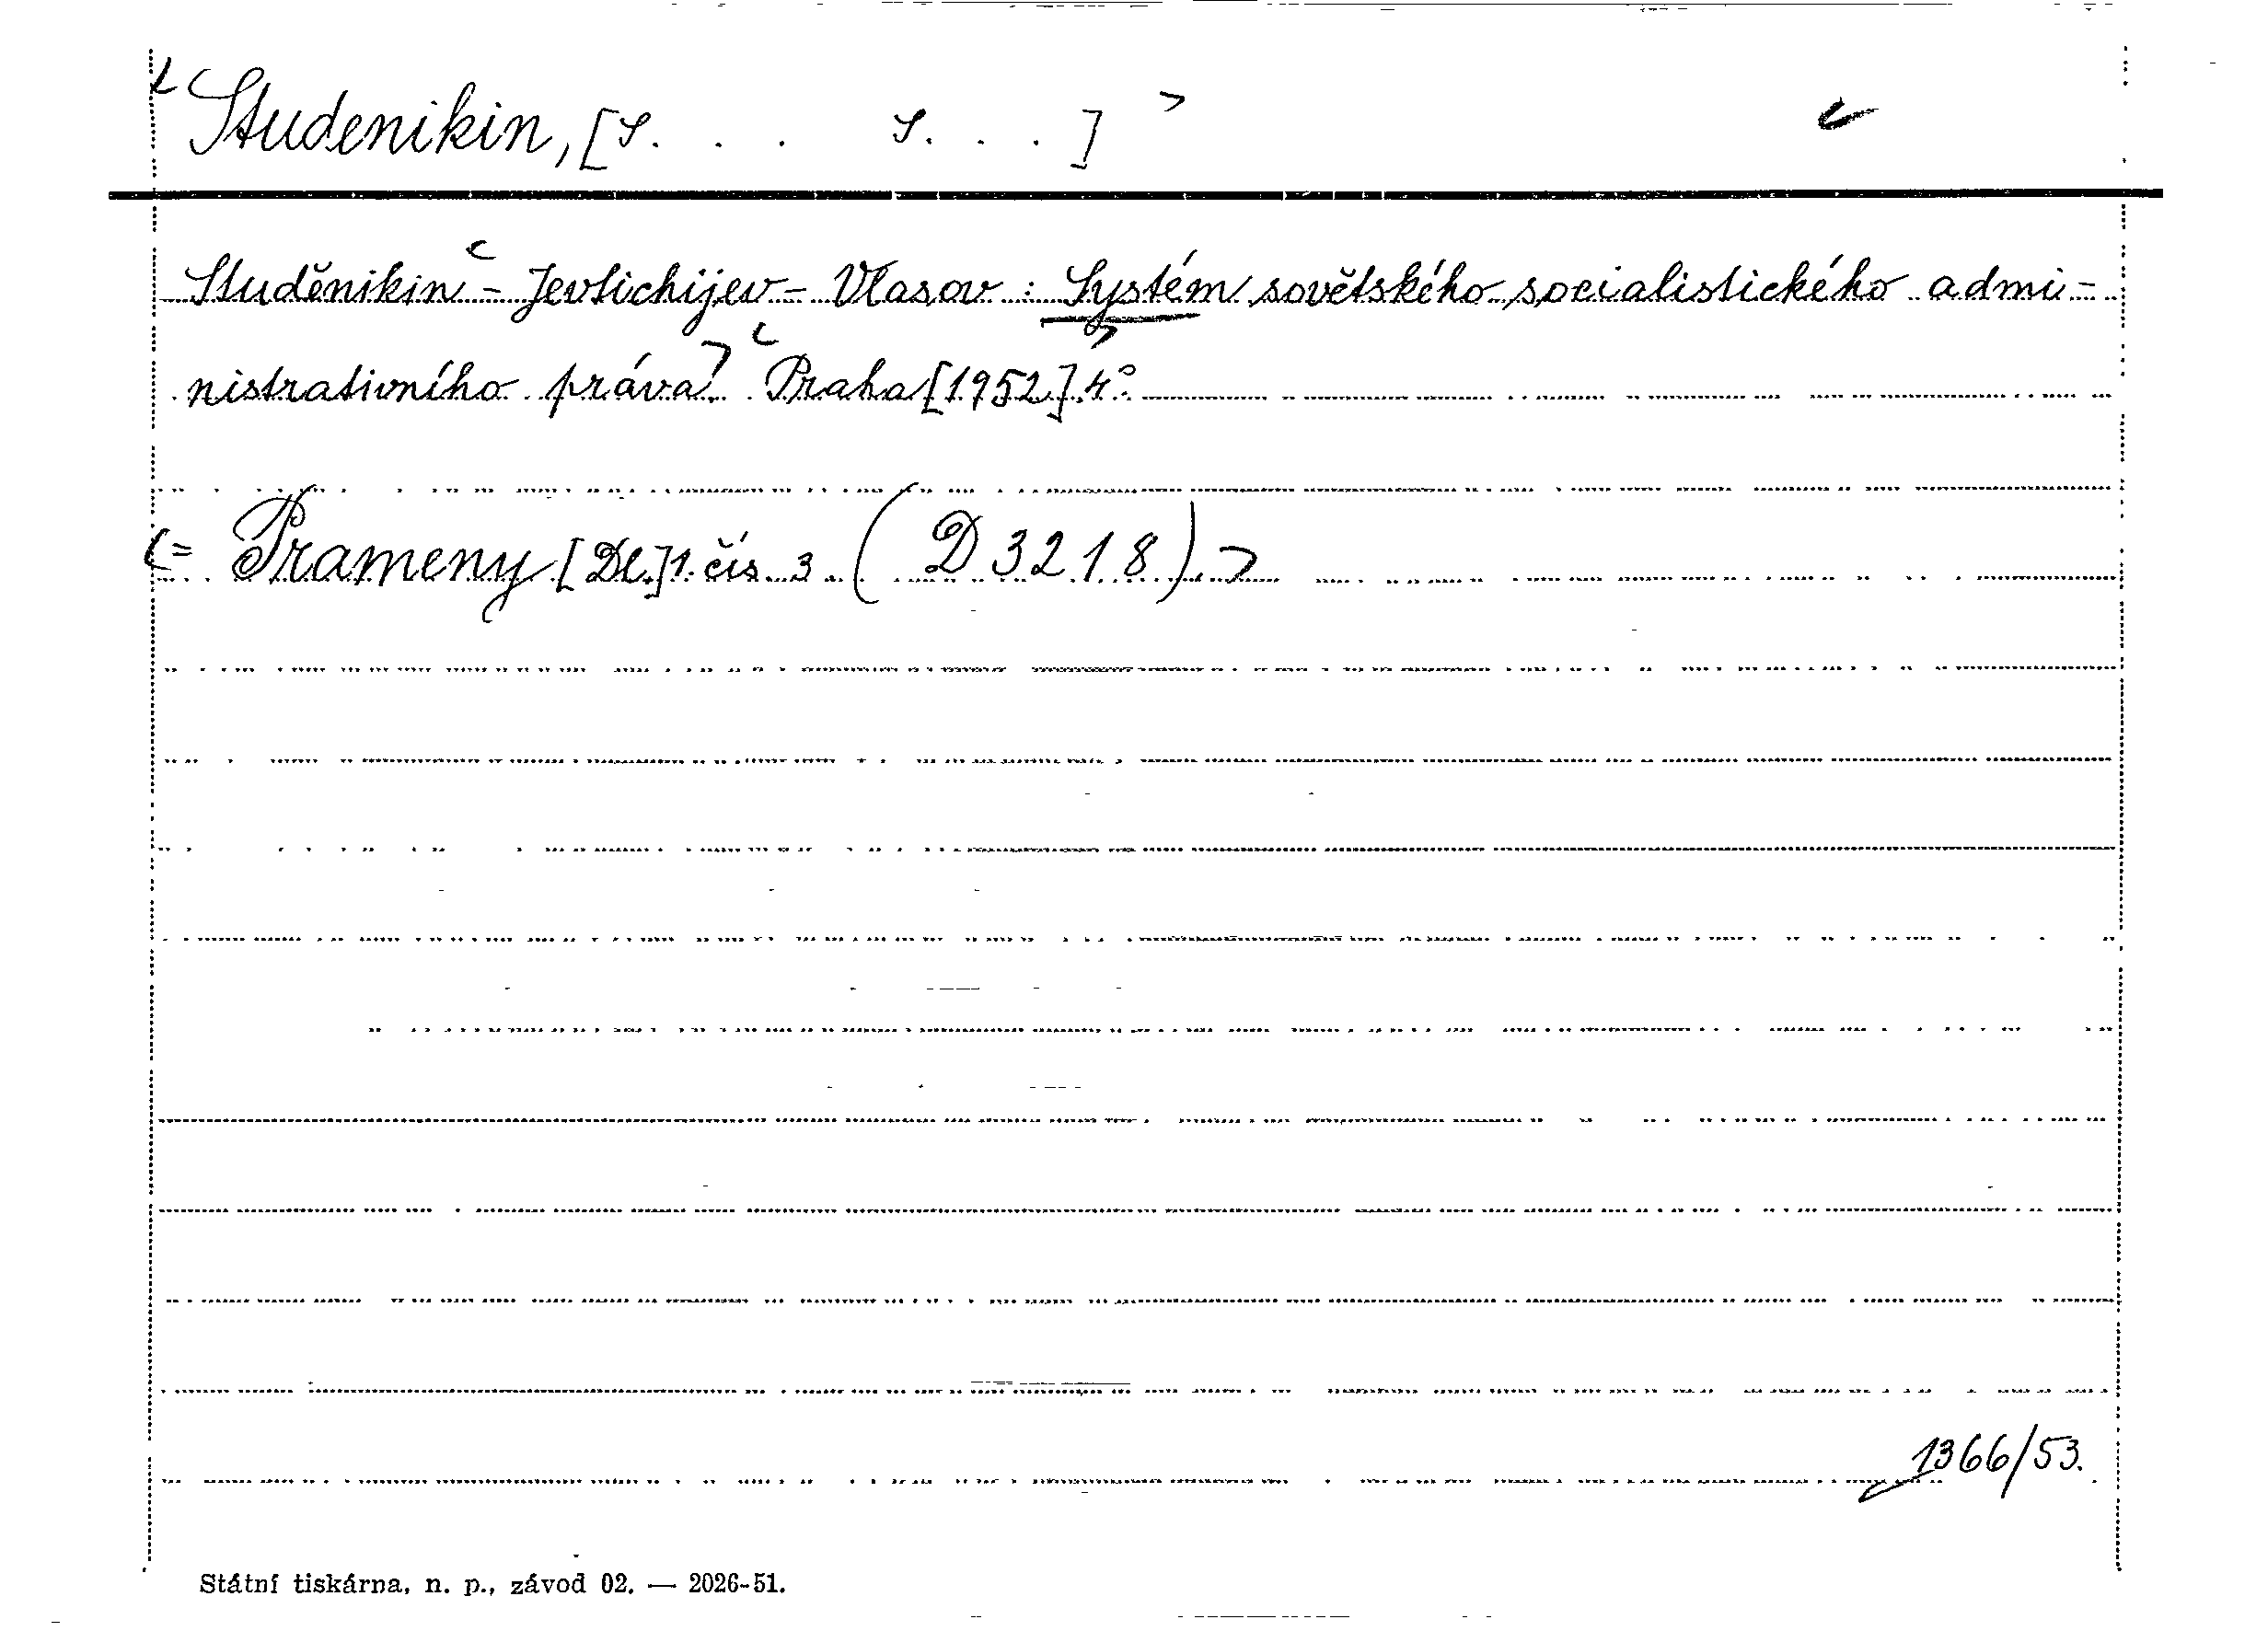 Studenikin, [S. . . S. . .]
Studěnikin - Jevtichijev - Vlasov : Systém sovětského socialistického admi-
nistrativního práva. Praha [1952]. 4°.
= Prameny [Dl.] 1. čís. 3. ( D 3218 )
1366/53.
Státní tiskárna, n. p., závod 02. — 2026-51.